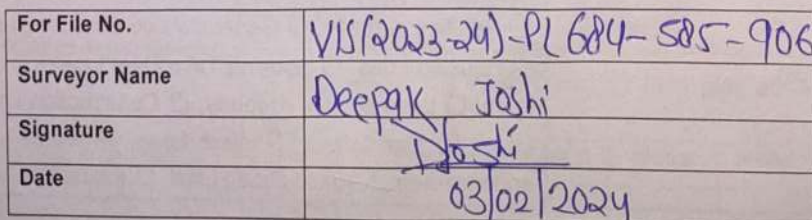 For File No. VIS(2023-24)-PL684-585-906
Surveyor Name Deepak Joshi
Signature DJoshi
Date 03/02/2024